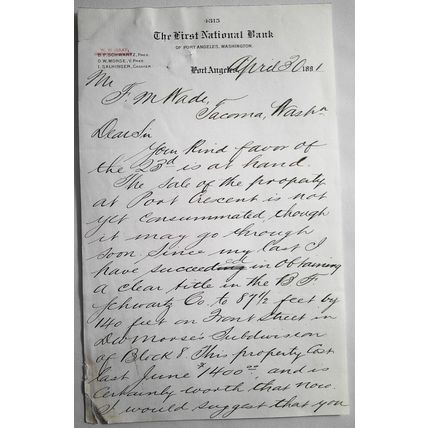 1313
The First National Bank
OF PORT ANGELES, WASHINGTON.
B. F. SCHWARTZ, PRES.
D. W. MORSE, V. PRES.
I. GALHINGER, CASHIER
Port Angeles, April 30 1891
Mr
F. M. Wade,
Tacoma, Washn
Dear Sir
Your kind favor of
the 23d is at hand.
The sale of the property
at Port Crescent is not
yet consummated though
it may go through
soon. Since my last I
have succeeded in obtaining
a clear title in the B F
Schwartz Co. to 87½ feet by
140 feet on Front Street in
D W Morse's Subdivision
of Block 8 This property cost
last June $1400.00, and is
certainly worth that now.
I would suggest that you